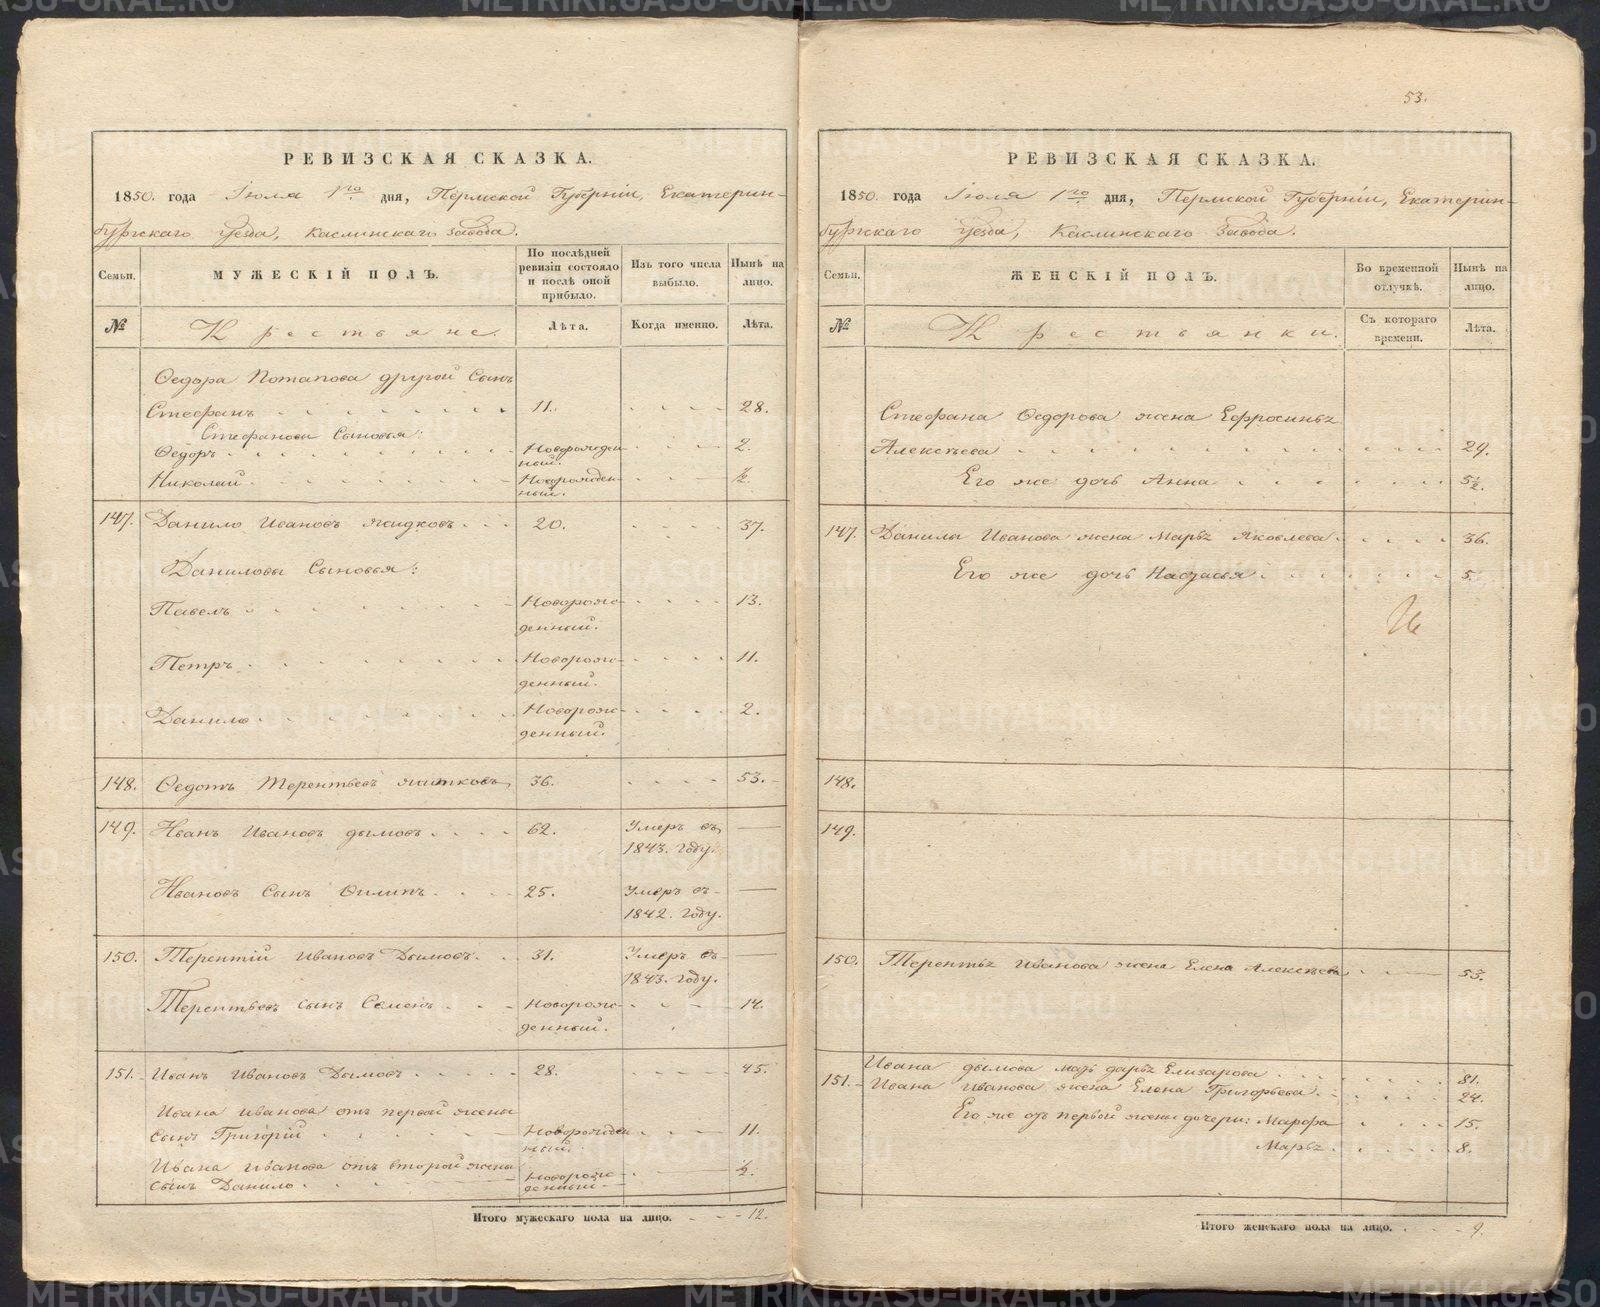 РЕВИЗСКАЯ СКАЗКА.
1850. года Іюля 1го дня, Пермской Губерніи, Екатерин-
бургскаго Уезда, Каслинскаго Завода.
Семьи.
МУЖЕСКІЙ ПОЛЪ.
По послѣдней
ревизіи состояло
и послѣ оной
прибыло.
Изъ того числа
выбыло.
Нынѣ на
лицо.
№
Крестьяне.
Лѣта.
Когда именно.
Лѣта.
Ѳедора Потапова другой Сынъ
Стефанъ 11. 28.
Стефановы Сыновья:
Ѳедоръ Новорожден- 2.
ный.
Николай Новорожден- ½
ный.
147. Данило Ивановъ Жидковъ 20. 37.
Даниловы Сыновья:
Павелъ Новорож- 13.
денный.
Петръ Новорож- 11.
денный.
Данило Новорож- 2.
денный.
148. Ѳедотъ Терентьевъ 36. 53.
149. Иванъ Ивановъ Дымовъ 62. Умеръ въ
1843. году.
Ивановъ Сынъ Филипъ 25. Умеръ въ
1842. году.
150. Терентій Ивановъ Дымовъ 31. Умеръ въ
1843. году.
Терентьевъ сынъ Семенъ Новорож- 14.
денный.
151. Иванъ Ивановъ Дымовъ 28. 45.
Ивана Иванова отъ первой жены
сынъ Григорій Новорожден 11.
ный.
Ивана Иванова отъ второй жены
сынъ Данило Новорож- ½.
денный
Итого мужескаго пола на лицо. 12.
53.
РЕВИЗСКАЯ СКАЗКА.
1850. года Іюля 1го дня, Пермской Губерніи, Екатерин-
бургскаго Уезда, Каслинскаго Завода.
Семьи.
ЖЕНСКІЙ ПОЛЪ.
Во временной
отлучкѣ.
Нынѣ на
лицо.
№
Крестьянки.
Съ котораго
времени.
Лѣта.
Стефана Ѳедорова жена Ефросинья
Алексѣева 29.
Его же дочь Анна 5½.
147. Данилы Иванова жена Марья Яковлева 36.
Его же дочь Настасья 5.
148.
149.
150. Терентья Иванова жена Елена Алексѣева 53.
Ивана Дымова мать Дарья Елизарова 81.
151. Ивана Иванова жена Елена Григорьева 24.
Его же отъ первой жены дочери: Марфа 15.
Марья 8.
Итого женскаго пола на лицо. 9.
METRIKI.GASO-URAL.RU